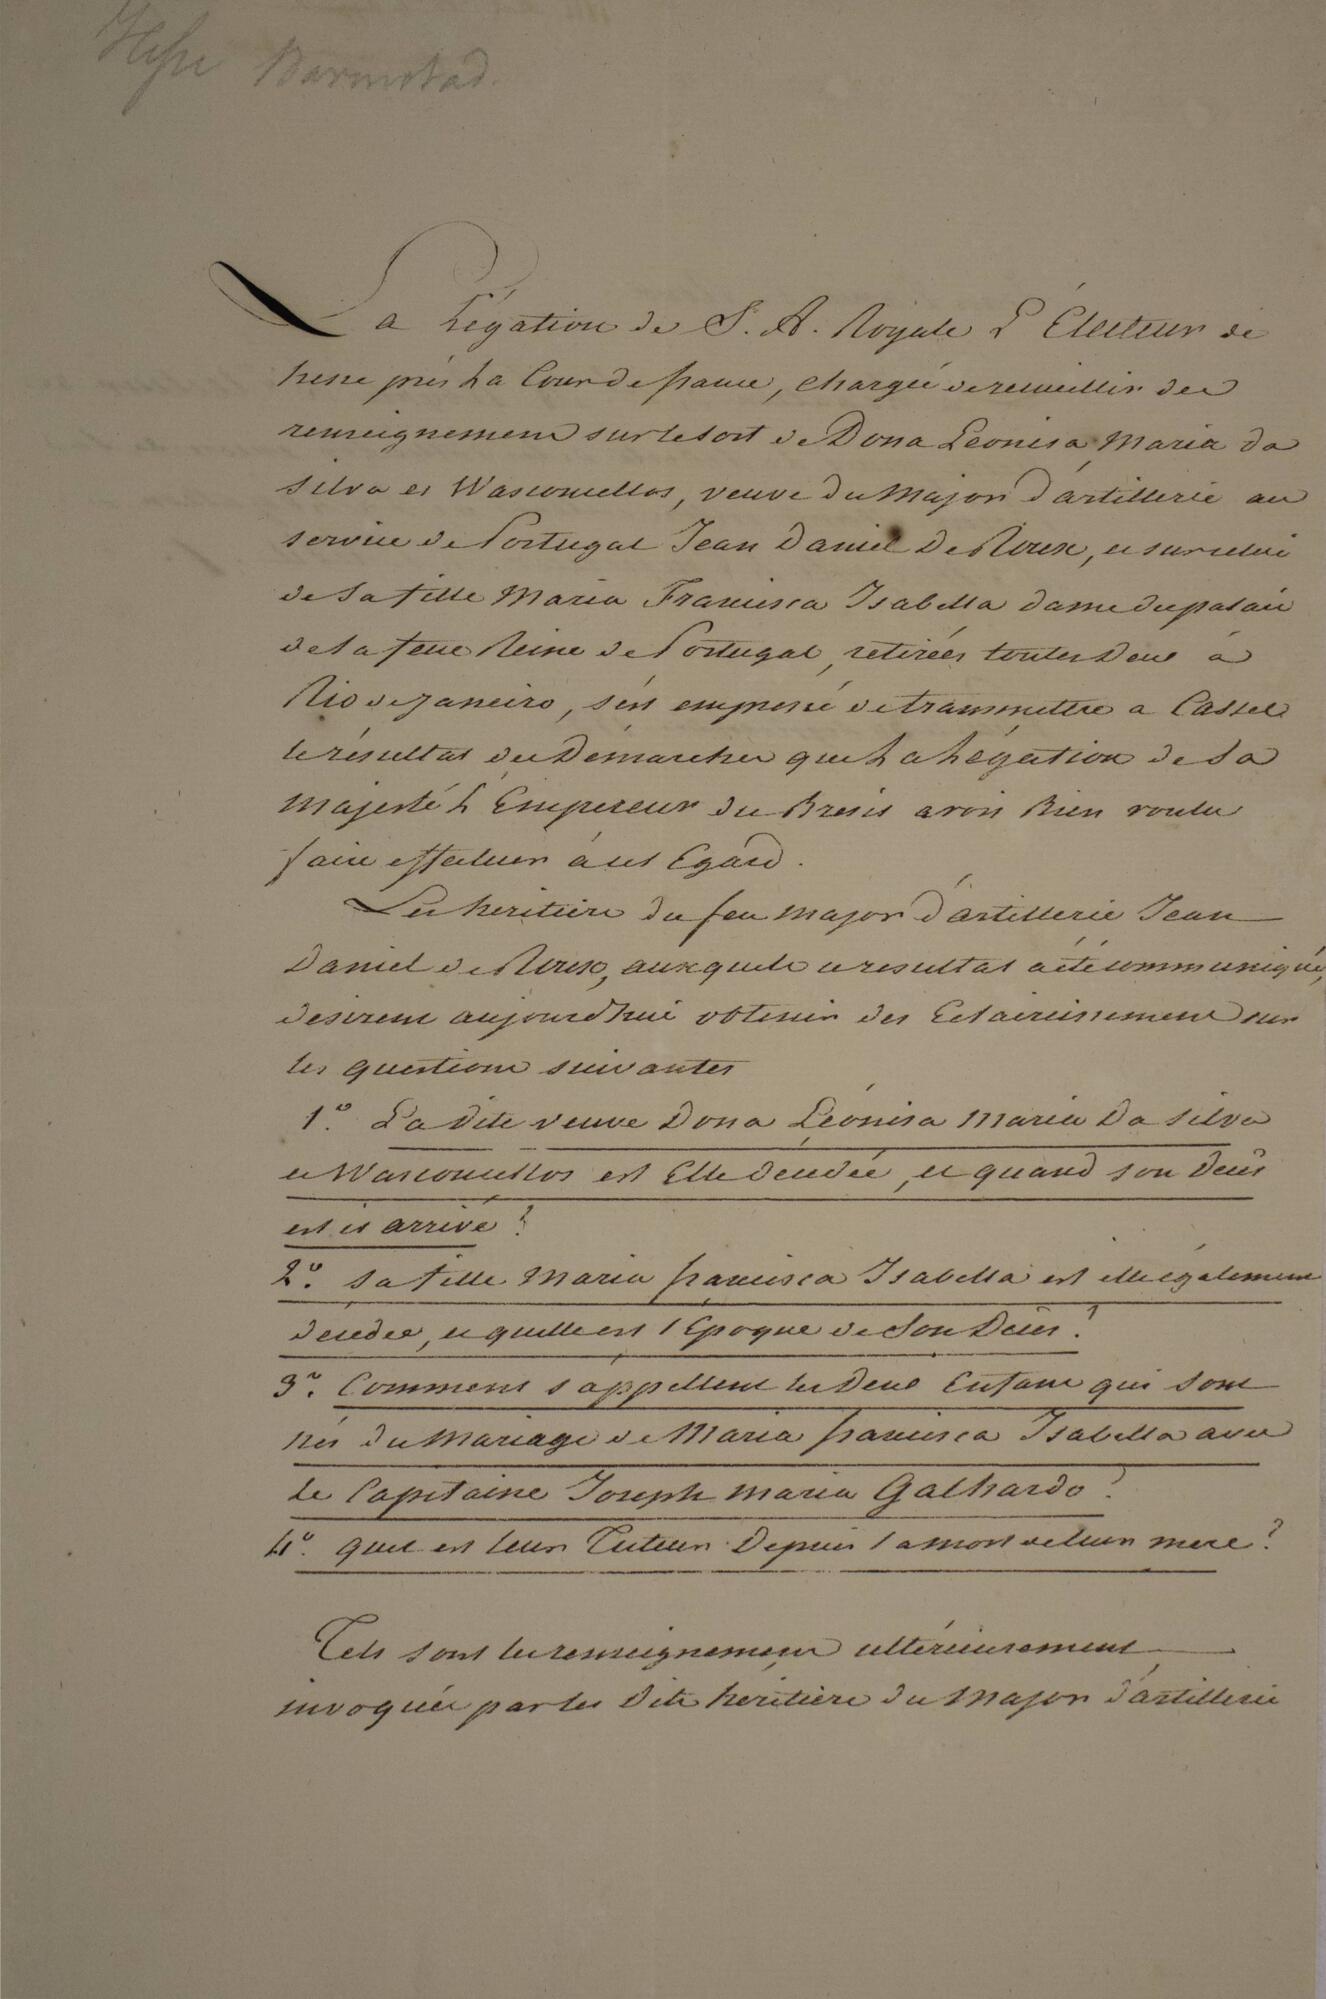 Hesse Darmstad.
La Légation de S. A. Royale L'Électeur de
hesse près La Cour de france, chargée de recueillir des
renseignemens sur le sort de Dona Leonisa Maria da
silva et Wasconcellos, veuve du Major d'artillerie au
service de Portugal Jean Daniel de Roux, et sur celui
de sa fille Maria Francisca Isabella dame du palais
de la feue Reine de Portugal, retirées toutes Deux à
Rio de janeiro, s'est empressé de transmettre a Cassel
le résultat des Démarches que La Légation de Sa
Majesté L'Empereur du Bresil avoit Bien voulu
faire effectuer à cet Egard.
Les heritiers du feu Major d'artillerie Jean
Daniel de Roux, auxquels ce resultat a été communiqué,
desirent aujourd'hui obtenir des Eclaircissemens sur
les questions suivantes
1º. La dite veuve Dona Léonisa Maria Da silva
et Wasconcellos est Elle décédée, et quand son Decès
est il arrivé?
2º. sa fille Maria francisca Isabella est elle également
décédée, et quelle est l'Epoque de Son Decès?
3º. Comment s'appellent les Deux Enfans qui sont
nés du Mariage de Maria francisca Isabella avec
le Capitaine Joseph Maria Galhardo?
4º. quel est leur Tuteur Depuis la mort de leur mere?
Tels sont les renseignemens ultérieurement
invoqués par les Dits heritiers du Major d'artillerie